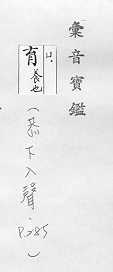 彙音寶鑑
ㄐ
育養也
(恭下入聲.
P.285
)